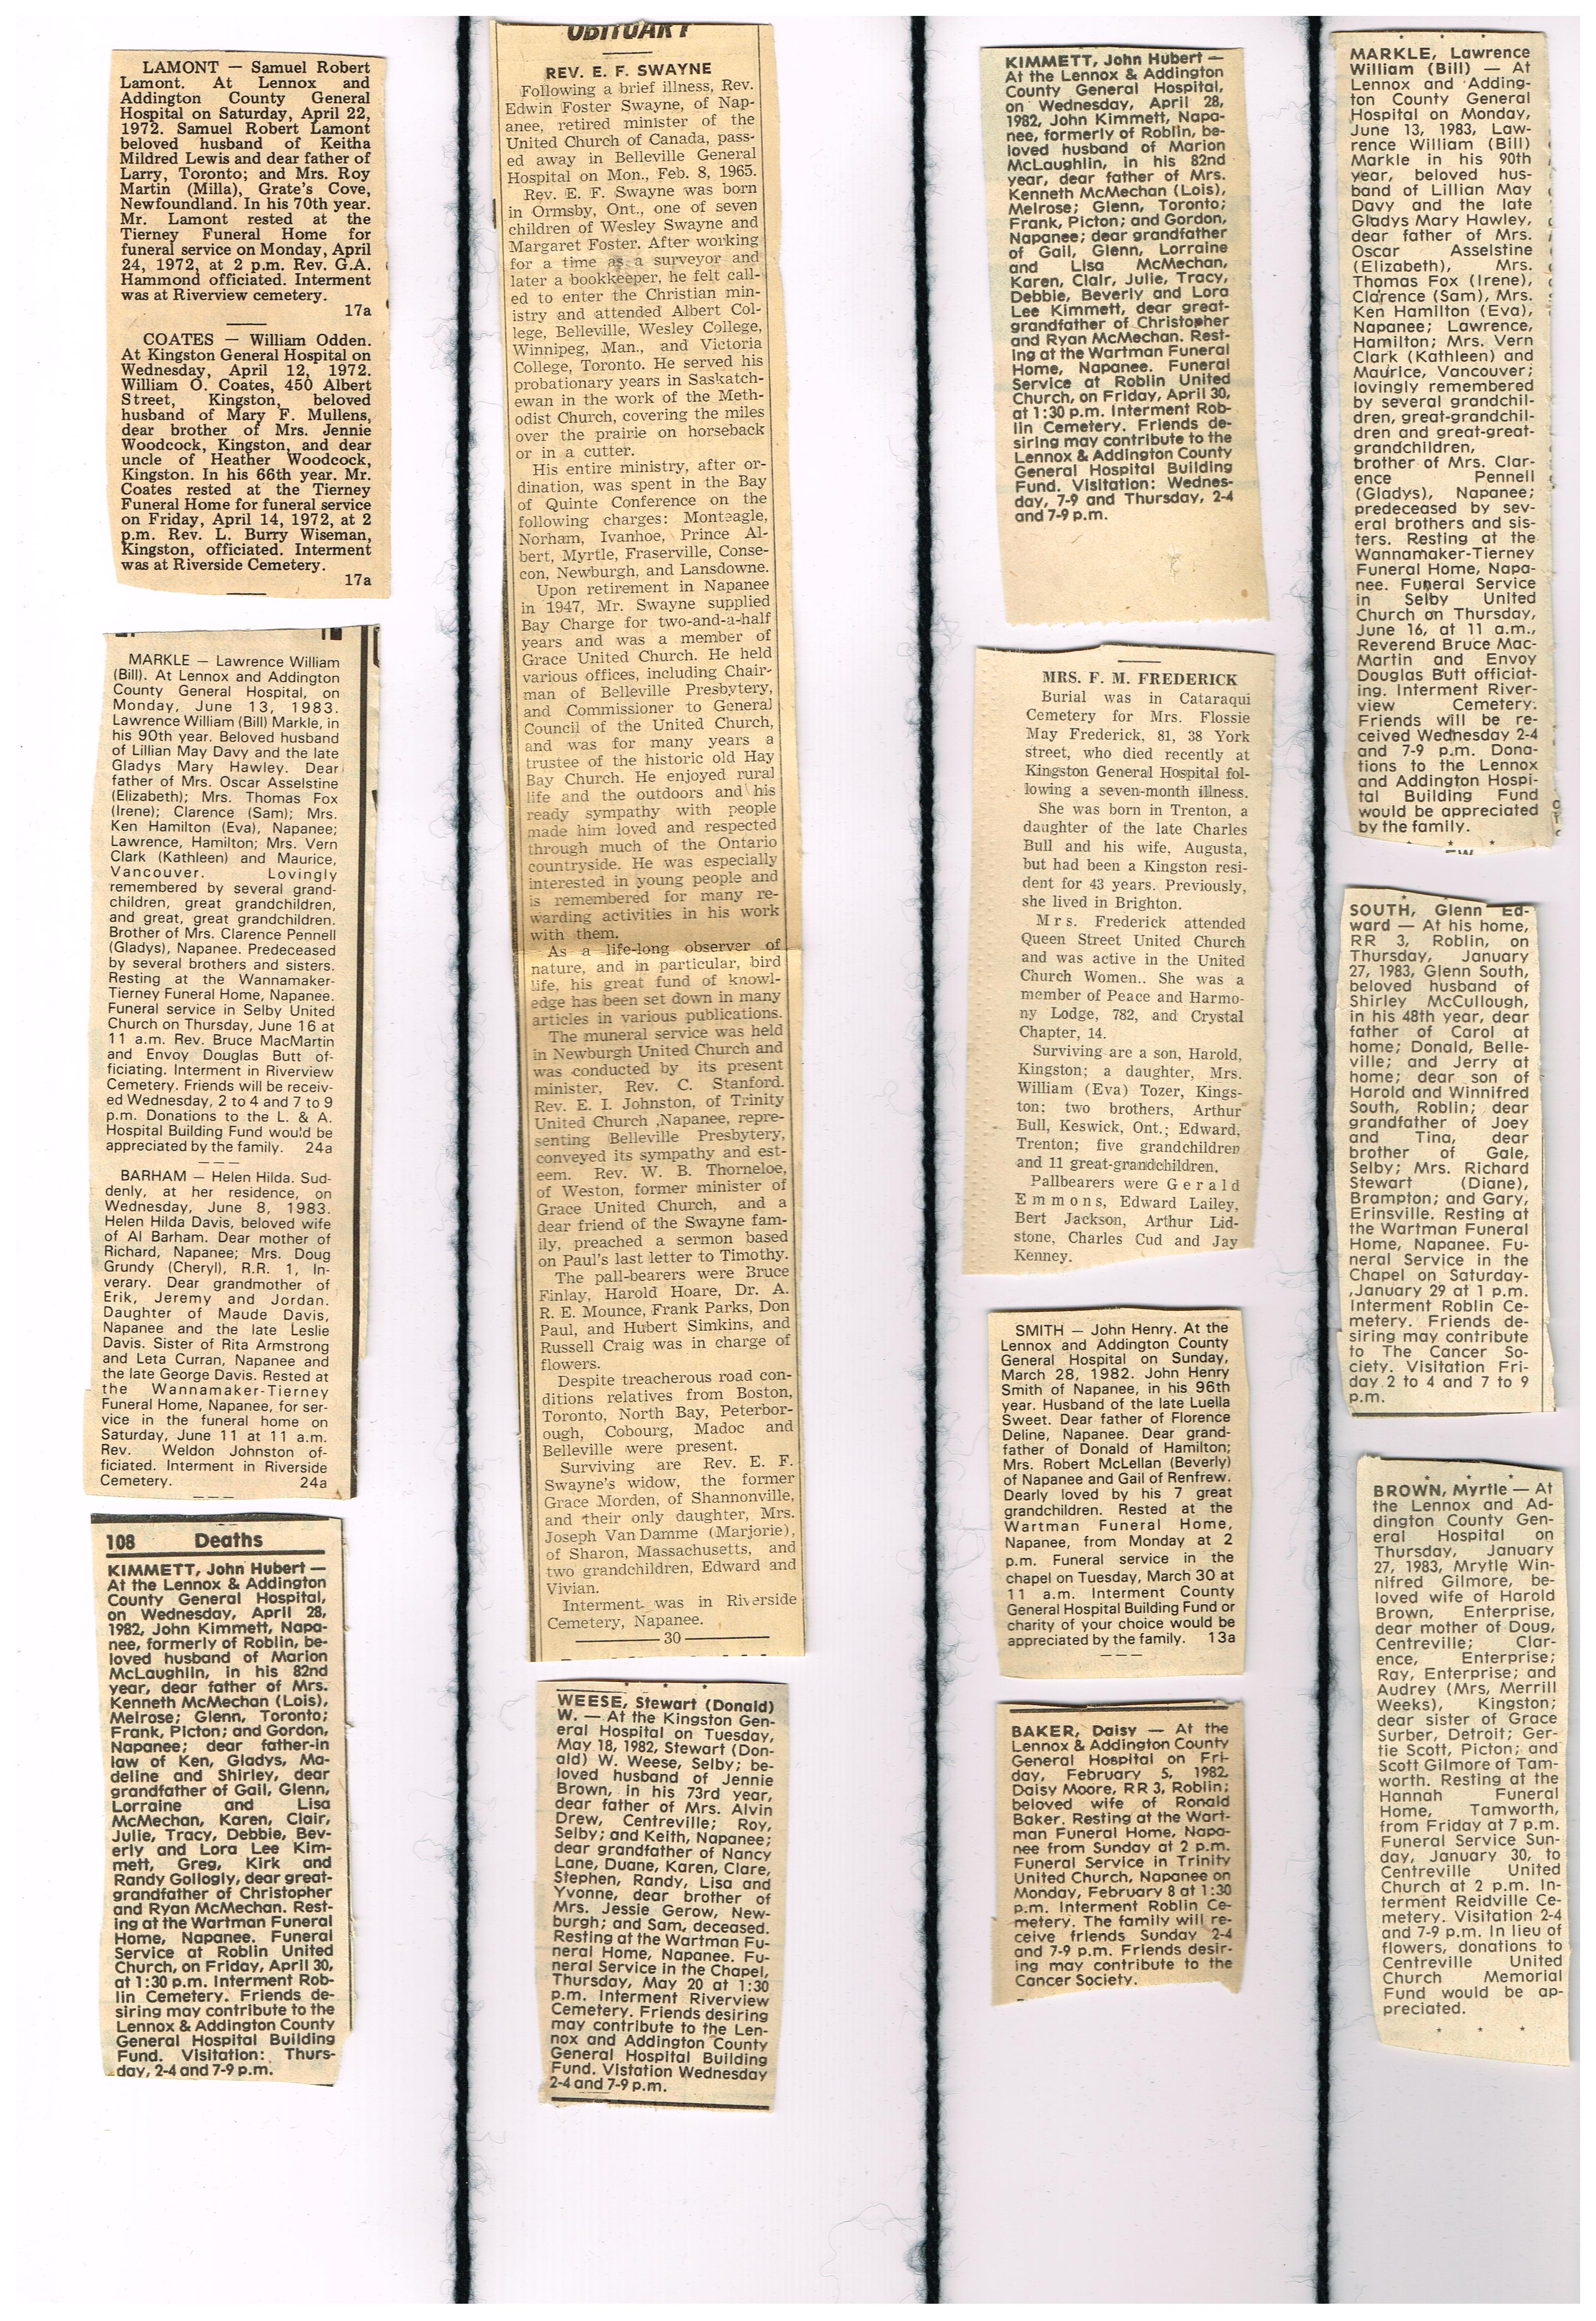 LAMONT — Samuel Robert
Lamont. At Lennox and
Addington County General
Hospital on Saturday, April 22,
1972. Samuel Robert Lamont
beloved husband of Keitha
Mildred Lewis and dear father of
Larry, Toronto; and Mrs. Roy
Martin (Milla), Grate's Cove,
Newfoundland. In his 70th year.
Mr. Lamont rested at the
Tierney Funeral Home for
funeral service on Monday, April
24, 1972, at 2 p.m. Rev. G.A.
Hammond officiated. Interment
was at Riverview cemetery.
17a
COATES — William Odden.
At Kingston General Hospital on
Wednesday, April 12, 1972.
William O. Coates, 450 Albert
Street, Kingston, beloved
husband of Mary F. Mullens,
dear brother of Mrs. Jennie
Woodcock, Kingston, and dear
uncle of Heather Woodcock,
Kingston. In his 66th year. Mr.
Coates rested at the Tierney
Funeral Home for funeral service
on Friday, April 14, 1972, at 2
p.m. Rev. L. Burry Wiseman,
Kingston, officiated. Interment
was at Riverside Cemetery.
17a
MARKLE — Lawrence William
(Bill). At Lennox and Addington
County General Hospital, on
Monday, June 13, 1983.
Lawrence William (Bill) Markle, in
his 90th year. Beloved husband
of Lillian May Davy and the late
Gladys Mary Hawley. Dear
father of Mrs. Oscar Asselstine
(Elizabeth); Mrs. Thomas Fox
(Irene); Clarence (Sam); Mrs.
Ken Hamilton (Eva), Napanee;
Lawrence, Hamilton; Mrs. Vern
Clark (Kathleen) and Maurice,
Vancouver. Lovingly
remembered by several grand-
children, great grandchildren,
and great, great grandchildren.
Brother of Mrs. Clarence Pennell
(Gladys), Napanee. Predeceased
by several brothers and sisters.
Resting at the Wannamaker-
Tierney Funeral Home, Napanee.
Funeral service in Selby United
Church on Thursday, June 16 at
11 a.m. Rev. Bruce MacMartin
and Envoy Douglas Butt of-
ficiating. Interment in Riverview
Cemetery. Friends will be receiv-
ed Wednesday, 2 to 4 and 7 to 9
p.m. Donations to the L. & A.
Hospital Building Fund would be
appreciated by the family. 24a
BARHAM — Helen Hilda. Sud-
denly, at her residence, on
Wednesday, June 8, 1983.
Helen Hilda Davis, beloved wife
of Al Barham. Dear mother of
Richard, Napanee; Mrs. Doug
Grundy (Cheryl), R.R. 1, In-
verary. Dear grandmother of
Erik, Jeremy and Jordan.
Daughter of Maude Davis,
Napanee and the late Leslie
Davis. Sister of Rita Armstrong
and Leta Curran, Napanee and
the late George Davis. Rested at
the Wannamaker-Tierney
Funeral Home, Napanee, for ser-
vice in the funeral home on
Saturday, June 11 at 11 a.m.
Rev. Weldon Johnston of-
ficiated. Interment in Riverside
Cemetery. 24a
108 Deaths
KIMMETT, John Hubert —
At the Lennox & Addington
County General Hospital,
on Wednesday, April 28,
1982, John Kimmett, Napa-
nee, formerly of Roblin, be-
loved husband of Marion
McLaughlin, in his 82nd
year, dear father of Mrs.
Kenneth McMechan (Lois),
Melrose; Glenn, Toronto;
Frank, Picton; and Gordon,
Napanee; dear father-in
law of Ken, Gladys, Ma-
deline and Shirley, dear
grandfather of Gail, Glenn,
Lorraine and Lisa
McMechan, Karen, Clair,
Julie, Tracy, Debbie, Bev-
erly and Lora Lee Kim-
mett, Greg, Kirk and
Randy Gollogly, dear great-
grandfather of Christopher
and Ryan McMechan. Rest-
ing at the Wartman Funeral
Home, Napanee. Funeral
Service at Roblin United
Church, on Friday, April 30,
at 1:30 p.m. Interment Rob-
lin Cemetery. Friends de-
siring may contribute to the
Lennox & Addington County
General Hospital Building
Fund. Visitation: Thurs-
day, 2-4 and 7-9 p.m.
OBITUARY
REV. E. F. SWAYNE
Following a brief illness, Rev.
Edwin Foster Swayne, of Nap-
anee, retired minister of the
United Church of Canada, pass-
ed away in Belleville General
Hospital on Mon., Feb. 8, 1965.
Rev. E. F. Swayne was born
in Ormsby, Ont., one of seven
children of Wesley Swayne and
Margaret Foster. After working
for a time as a surveyor and
later a bookkeeper, he felt call-
ed to enter the Christian min-
istry and attended Albert Col-
lege, Belleville, Wesley College,
Winnipeg, Man., and Victoria
College, Toronto. He served his
probationary years in Saskatch-
ewan in the work of the Meth-
odist Church, covering the miles
over the prairie on horseback
or in a cutter.
His entire ministry, after or-
dination, was spent in the Bay
of Quinte Conference on the
following charges: Monteagle,
Norham, Ivanhoe, Prince Al-
bert, Myrtle, Fraserville, Conse-
con, Newburgh, and Lansdowne.
Upon retirement in Napanee
in 1947, Mr. Swayne supplied
Bay Charge for two-and-a-half
years and was a member of
Grace United Church. He held
various offices, including Chair-
man of Belleville Presbytery,
and Commissioner to General
Council of the United Church,
and was for many years a
trustee of the historic old Hay
Bay Church. He enjoyed rural
life and the outdoors and his
ready sympathy with people
made him loved and respected
through much of the Ontario
countryside. He was especially
interested in young people and
is remembered for many re-
warding activities in his work
with them.
As a life-long observer of
nature, and in particular, bird
life, his great fund of knowl-
edge has been set down in many
articles in various publications.
The muneral service was held
in Newburgh United Church and
was conducted by its present
minister, Rev. C. Stanford.
Rev. E. I. Johnston, of Trinity
United Church ,Napanee, repre-
senting Belleville Presbytery,
conveyed its sympathy and est-
eem. Rev. W. B. Thorneloe,
of Weston, former minister of
Grace United Church, and a
dear friend of the Swayne fam-
ily, preached a sermon based
on Paul's last letter to Timothy.
The pall-bearers were Bruce
Finlay, Harold Hoare, Dr. A.
R. E. Mounce, Frank Parks, Don
Paul, and Hubert Simkins, and
Russell Craig was in charge of
flowers.
Despite treacherous road con-
ditions relatives from Boston,
Toronto, North Bay, Peterbor-
ough, Cobourg, Madoc and
Belleville were present.
Surviving are Rev. E. F.
Swayne's widow, the former
Grace Morden, of Shannonville,
and their only daughter, Mrs.
Joseph Van Damme (Marjorie),
of Sharon, Massachusetts, and
two grandchildren, Edward and
Vivian.
Interment was in Riverside
Cemetery, Napanee.
30
WEESE, Stewart (Donald)
W. — At the Kingston Gen-
eral Hospital on Tuesday,
May 18, 1982, Stewart (Don-
ald) W. Weese, Selby; be-
loved husband of Jennie
Brown, in his 73rd year,
dear father of Mrs. Alvin
Drew, Centreville; Roy,
Selby; and Keith, Napanee;
dear grandfather of Nancy
Lane, Duane, Karen, Clare,
Stephen, Randy, Lisa and
Yvonne, dear brother of
Mrs. Jessie Gerow, New-
burgh; and Sam, deceased.
Resting at the Wartman Fu-
neral Home, Napanee. Fu-
neral Service in the Chapel,
Thursday, May 20 at 1:30
p.m. Interment Riverview
Cemetery. Friends desiring
may contribute to the Len-
nox and Addington County
General Hospital Building
Fund. Vistation Wednesday
2-4 and 7-9 p.m.
KIMMETT, John Hubert —
At the Lennox & Addington
County General Hospital,
on Wednesday, April 28,
1982, John Kimmett, Napa-
nee, formerly of Roblin, be-
loved husband of Marion
McLaughlin, in his 82nd
year, dear father of Mrs.
Kenneth McMechan (Lois),
Melrose; Glenn, Toronto;
Frank, Picton; and Gordon,
Napanee; dear grandfather
of Gail, Glenn, Lorraine
and Lisa McMechan,
Karen, Clair, Julie, Tracy,
Debbie, Beverly and Lora
Lee Kimmett, dear great-
grandfather of Christopher
and Ryan McMechan. Rest-
ing at the Wartman Funeral
Home, Napanee. Funeral
Service at Roblin United
Church, on Friday, April 30,
at 1:30 p.m. Interment Rob-
lin Cemetery. Friends de-
siring may contribute to the
Lennox & Addington County
General Hospital Building
Fund. Visitation: Wednes-
day, 7-9 and Thursday, 2-4
and 7-9 p.m.
MRS. F. M. FREDERICK
Burial was in Cataraqui
Cemetery for Mrs. Flossie
May Frederick, 81, 38 York
street, who died recently at
Kingston General Hospital fol-
lowing a seven-month illness.
She was born in Trenton, a
daughter of the late Charles
Bull and his wife, Augusta,
but had been a Kingston resi-
dent for 43 years. Previously,
she lived in Brighton.
Mrs. Frederick attended
Queen Street United Church
and was active in the United
Church Women.. She was a
member of Peace and Harmo-
ny Lodge, 782, and Crystal
Chapter, 14.
Surviving are a son, Harold,
Kingston; a daughter, Mrs.
William (Eva) Tozer, Kings-
ton; two brothers, Arthur
Bull, Keswick, Ont.; Edward,
Trenton; five grandchildren
and 11 great-grandchildren.
Pallbearers were Gerald
Emmons, Edward Lailey,
Bert Jackson, Arthur Lid-
stone, Charles Cud and Jay
Kenney.
SMITH — John Henry. At the
Lennox and Addington County
General Hospital on Sunday,
March 28, 1982. John Henry
Smith of Napanee, in his 96th
year. Husband of the late Luella
Sweet. Dear father of Florence
Deline, Napanee. Dear grand-
father of Donald of Hamilton;
Mrs. Robert McLellan (Beverly)
of Napanee and Gail of Renfrew.
Dearly loved by his 7 great
grandchildren. Rested at the
Wartman Funeral Home,
Napanee, from Monday at 2
p.m. Funeral service in the
chapel on Tuesday, March 30 at
11 a.m. Interment County
General Hospital Building Fund or
charity of your choice would be
appreciated by the family. 13a
BAKER, Daisy — At the
Lennox & Addington County
General Hospital on Fri-
day, February 5, 1982,
Daisy Moore, RR 3, Roblin;
beloved wife of Ronald
Baker. Resting at the Wart-
man Funeral Home, Napa-
nee from Sunday at 2 p.m.
Funeral Service in Trinity
United Church, Napanee on
Monday, February 8 at 1:30
p.m. Interment Roblin Ce-
metery. The family will re-
ceive friends Sunday 2-4
and 7-9 p.m. Friends desir-
ing may contribute to the
Cancer Society.
MARKLE, Lawrence
William (Bill) — At
Lennox and Adding-
ton County General
Hospital on Monday,
June 13, 1983, Law-
rence William (Bill)
Markle in his 90th
year, beloved hus-
band of Lillian May
Davy and the late
Gladys Mary Hawley,
dear father of Mrs.
Oscar Asselstine
(Elizabeth), Mrs.
Thomas Fox (Irene),
Clarence (Sam), Mrs.
Ken Hamilton (Eva),
Napanee; Lawrence,
Hamilton; Mrs. Vern
Clark (Kathleen) and
Maurice, Vancouver;
lovingly remembered
by several grandchil-
dren, great-grandchil-
dren and great-great-
grandchildren,
brother of Mrs. Clar-
ence Pennell
(Gladys), Napanee;
predeceased by sev-
eral brothers and sis-
ters. Resting at the
Wannamaker-Tierney
Funeral Home, Napa-
nee. Funeral Service
in Selby United
Church on Thursday,
June 16, at 11 a.m.,
Reverend Bruce Mac-
Martin and Envoy
Douglas Butt officiat-
ing. Interment River-
view Cemetery.
Friends will be re-
ceived Wednesday 2-4
and 7-9 p.m. Dona-
tions to the Lennox
and Addington Hospi-
tal Building Fund
would be appreciated
by the family.
SOUTH, Glenn Ed-
ward — At his home,
RR 3, Roblin, on
Thursday, January
27, 1983, Glenn South,
beloved husband of
Shirley McCullough,
in his 48th year, dear
father of Carol at
home; Donald, Belle-
ville; and Jerry at
home; dear son of
Harold and Winnifred
South, Roblin; dear
grandfather of Joey
and Tina, dear
brother of Gale,
Selby; Mrs. Richard
Stewart (Diane),
Brampton; and Gary,
Erinsville. Resting at
the Wartman Funeral
Home, Napanee. Fu-
neral Service in the
Chapel on Saturday-
,January 29 at 1 p.m.
Interment Roblin Ce-
metery. Friends de-
siring may contribute
to The Cancer So-
ciety. Visitation Fri-
day 2 to 4 and 7 to 9
p.m.
BROWN, Myrtle — At
the Lennox and Ad-
dington County Gen-
eral Hospital on
Thursday, January
27, 1983, Mrytle Win-
nifred Gilmore, be-
loved wife of Harold
Brown, Enterprise,
dear mother of Doug,
Centreville; Clar-
ence, Enterprise;
Ray, Enterprise; and
Audrey (Mrs, Merrill
Weeks), Kingston;
dear sister of Grace
Surber, Detroit; Ger-
tie Scott, Picton; and
Scott Gilmore of Tam-
worth. Resting at the
Hannah Funeral
Home, Tamworth,
from Friday at 7 p.m.
Funeral Service Sun-
day, January 30, to
Centreville United
Church at 2 p.m. In-
terment Reidville Ce-
metery. Visitation 2-4
and 7-9 p.m. In lieu of
flowers, donations to
Centreville United
Church Memorial
Fund would be ap-
preciated.